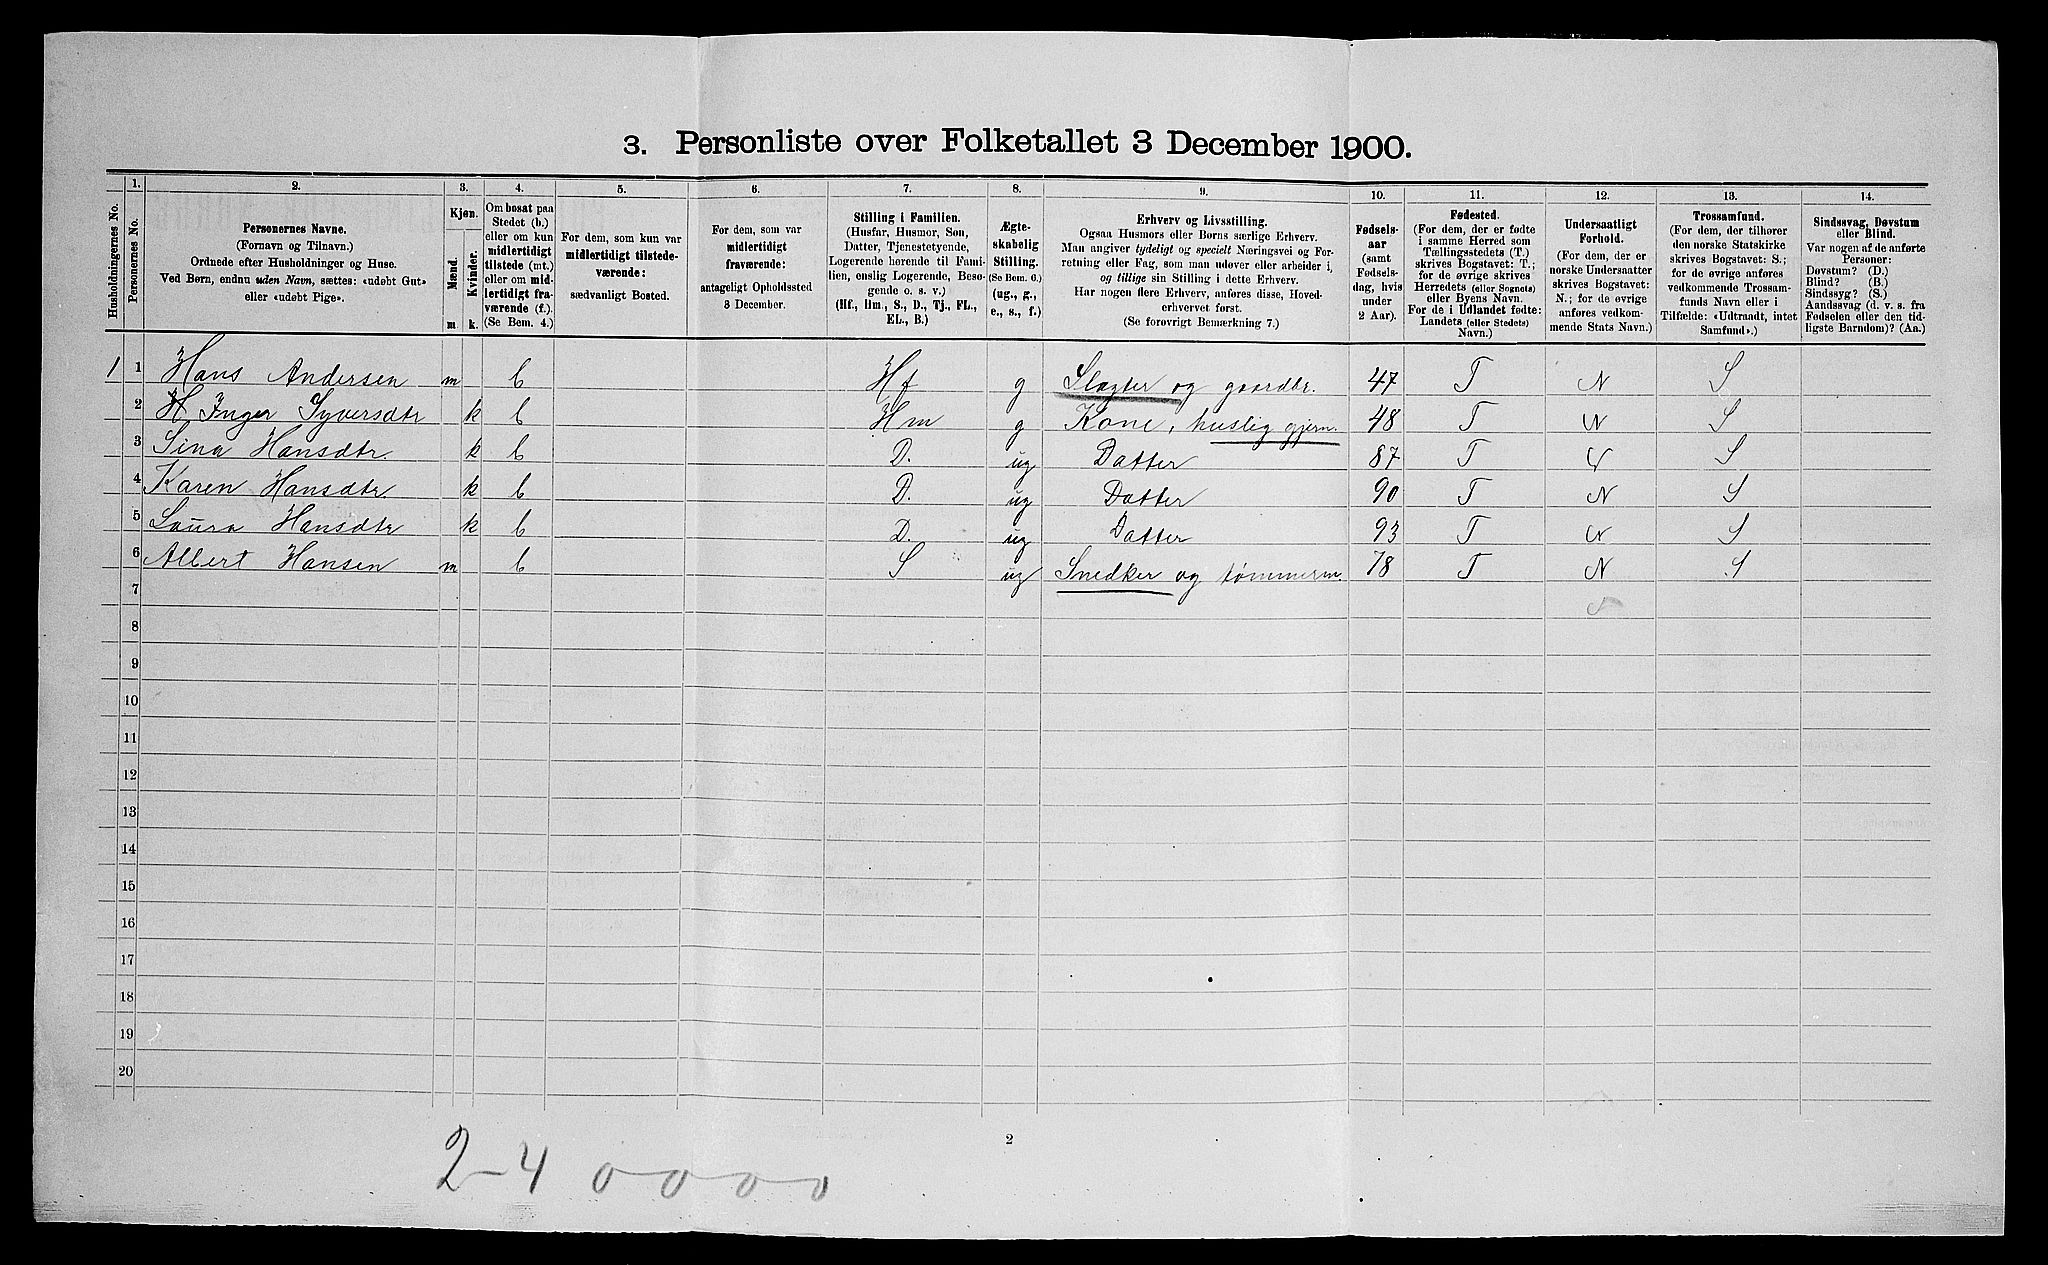 3. Personliste over Folketallet 3 December 1900.
Husholdningernes No.
1. Personernes No.
2. Personernes Navne.
(Fornavn og Tilnavn.)
Ordnede efter Husholdninger og Huse.
Ved Børn, endnu uden Navn, sættes: «udøbt Gut»
eller «udøbt Pige».
3. Kjøn.
Mænd. Kvinder.
m. k.
4. Om bosat paa
Stedet (b.)
eller om kun
midlertidigt
tilstede (mt.)
eller om mid-
lertidigt fra-
værende (f.).
(Se Bem. 4.)
5. For dem, som kun var
midlertidigt tilstede-
værende:
sædvanligt Bosted.
6. For dem, som var
midlertidigt
fraværende:
antageligt Opholdssted
3 December.
7. Stilling i Familien.
(Husfar, Husmor, Søn,
Datter, Tjenestetyende,
Logerende hørende til Fami-
lien, enslig Logerende, Besø-
gende o. s. v.)
(Hf., Hm., S., D., Tj., FL.,
EL., B.)
8. Ægte-
skabelig
Stilling.
(Se Bem. 6.)
(ug., g.,
e., s., f.)
9. Erhverv og Livsstilling.
Ogsaa Husmors eller Børns særlige Erhverv.
Man angiver tydeligt og specielt Næringsvei og For-
retning eller Fag, som man udøver eller arbeider i,
og tillige sin Stilling i dette Erhverv.
Har nogen flere Erhverv, anføres disse, Hoved-
erhvervet først.
(Se forøvrigt Bemærkning 7.)
10. Fødsels-
aar
(samt
Fødsels-
dag, hvis
under
2 Aar).
11. Fødested.
(For dem, der er fødte
i samme Herred som
Tællingsstedets (T.)
skrives Bogstavet: T.;
for de øvrige skrives
Herredets (eller Sognets)
eller Byens Navn.
For de i Udlandet fødte:
Landets (eller Stedets)
Navn.)
12. Undersaatligt
Forhold.
(For dem, der er
norske Undersaatter
skrives Bogstavet:
N.; for de øvrige
anføres vedkom-
mende Stats Navn.)
13. Trossamfund.
(For dem, der tilhører
den norske Statskirke
skrives Bogstavet: S.;
for de øvrige anføres
vedkommende Trossam-
funds Navn eller i
Tilfælde: «Udtraadt, intet
Samfund».)
14. Sindssvag, Døvstum
eller Blind.
Var nogen af de anførte
Personer:
Døvstum? (D.)
Blind? (B.)
Sindssyg? (S.)
Aandssvag (d. v. s. fra
Fødselen eller den tid-
ligste Barndom)? (Aa.)
1 1 Hans Andersen m b Hf g Slagter og gaardbr. 47 T N S
2 Inger Syversdtr k b Hm g Kone, huslig gjern. 48 T N S
3 Sina Hansdtr. k b D. ug Datter 87 T N S
4 Karen Hansdtr k b D. ug Datter 90 T N S
5 Laura Hansdtr k b D. ug Datter 93 T N S
6 Albert Hansen m b S ug Snedker og tømmerm. 78 T N S
7
8
9
10
11
12
13
14
15
16
17
18
19
20
2
2-4 0 0 0 0